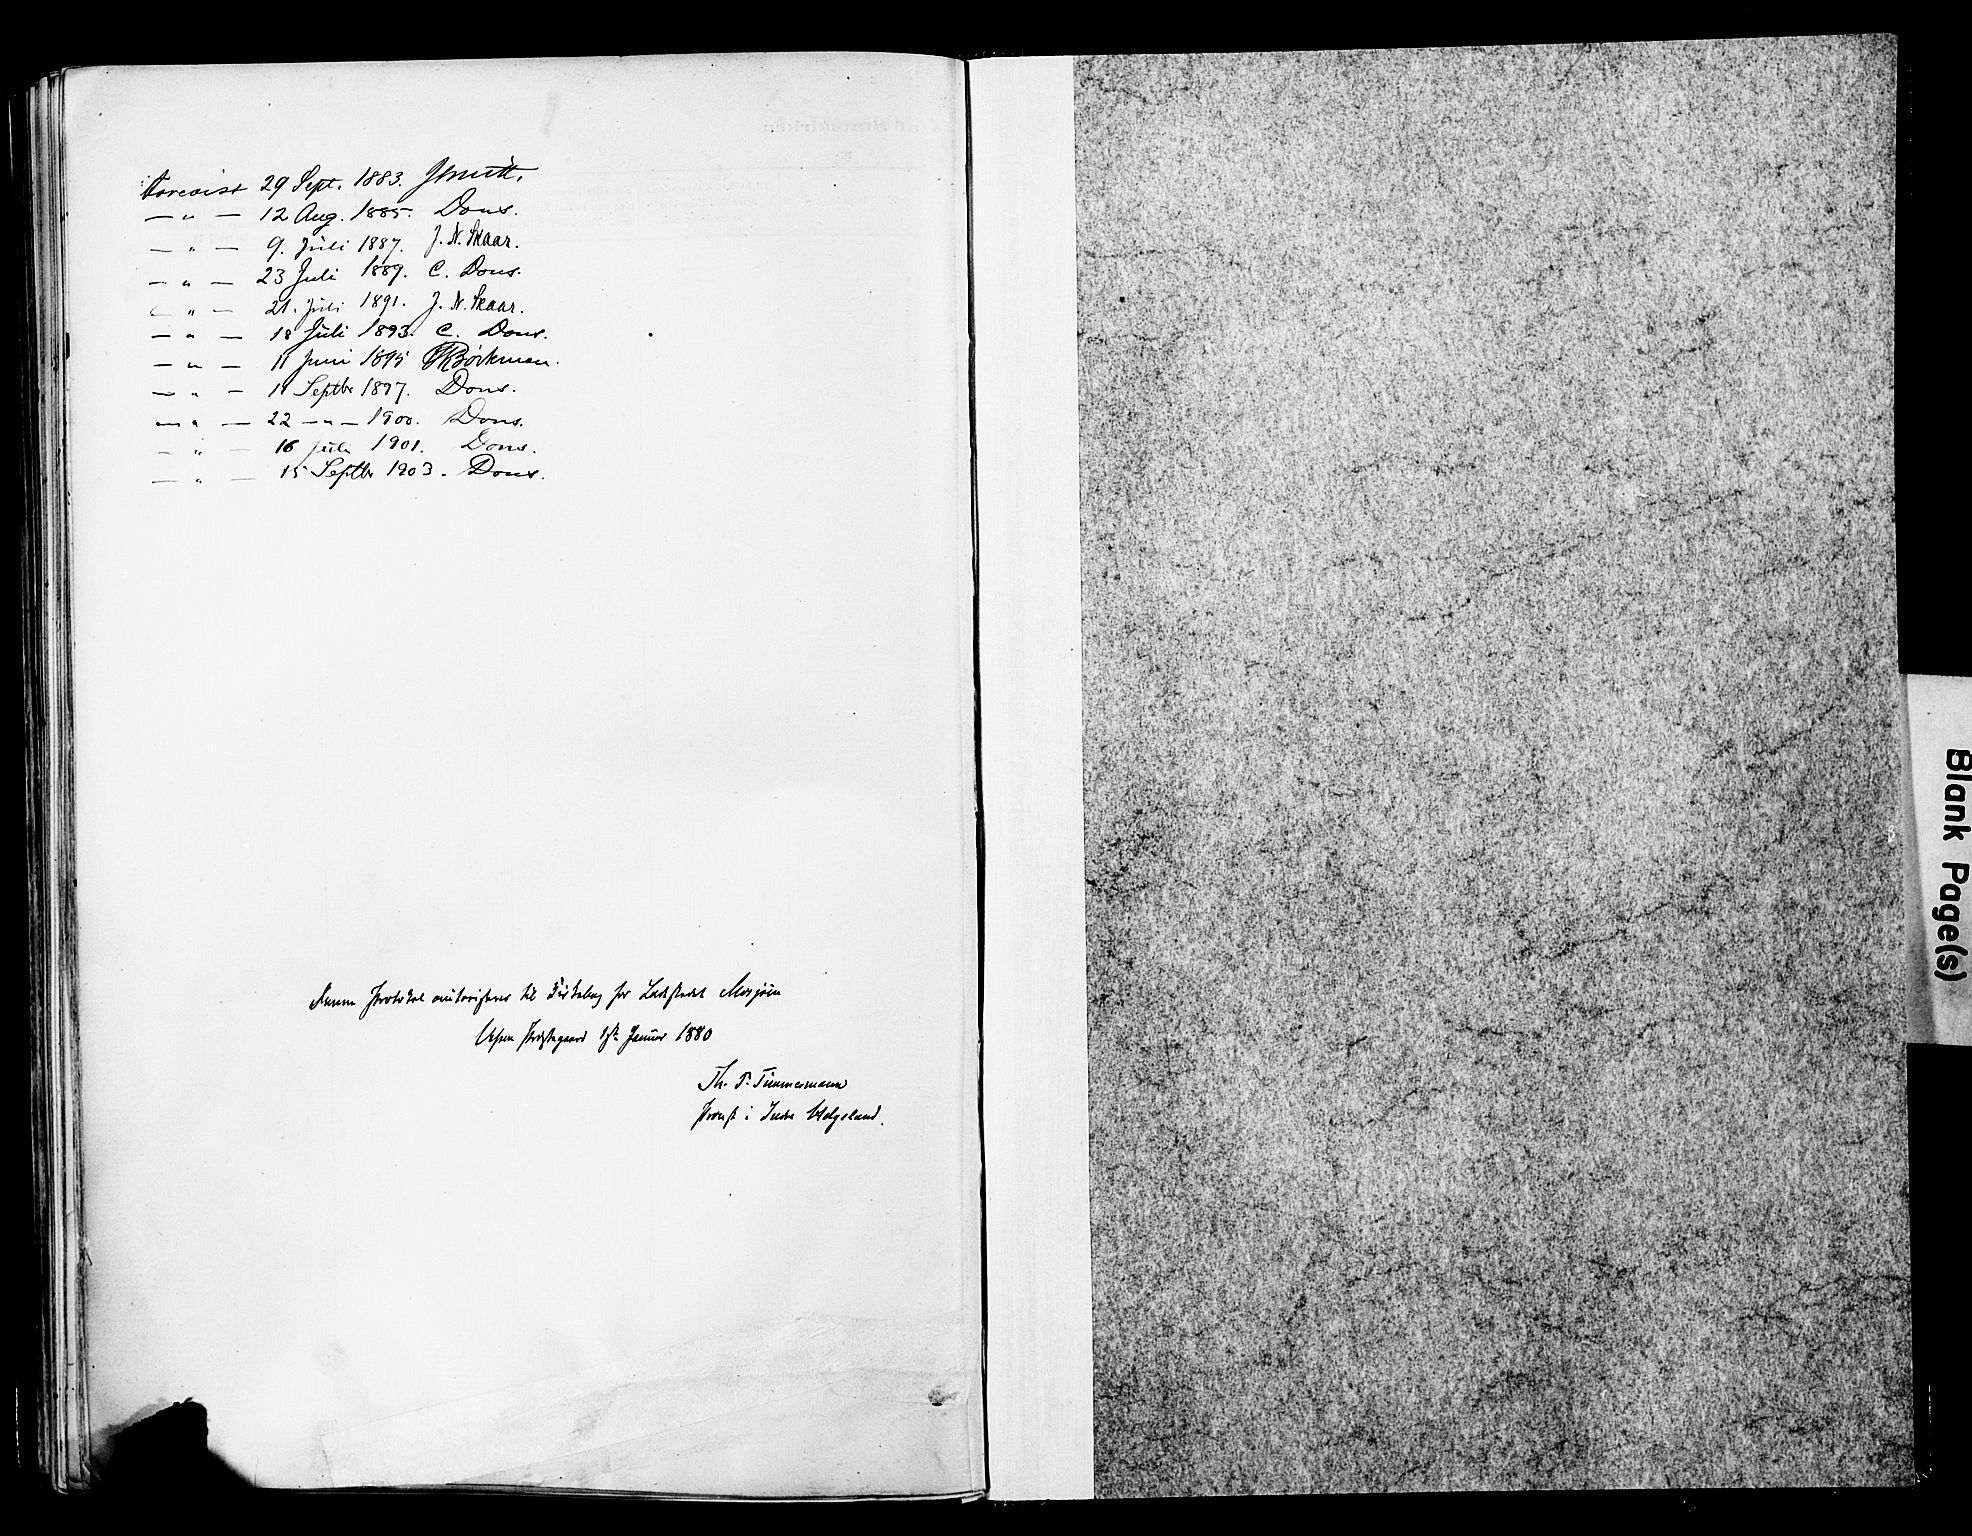 Forevist 29 Sept. 1883. Smitt.
— " — 12 Aug. 1885. Dons.
— " — 9. Juli 1887. J. N. Skaar.
— " — 23 Juli 1889. C. Dons.
— " — 21. Juli 1891. J. N. Skaar.
— " — 18 Juli 1893. C. Dons.
— " — 11 Juni 1895 Bøckman.
— " — 11 Septbr 1897. Dons.
— " — 22 — " — 1900. Dons.
— " — 16 Juli 1901. Dons.
— " — 15 Septbr 1903. Dons.
Denne Protokol autoriseres til Kirkebog for Ladestedet Mosjøen
Vefsen Præstegaard Januar 1880
Th. P. Timmermann
Provst i Indre Helgeland.
Blank Page(s)